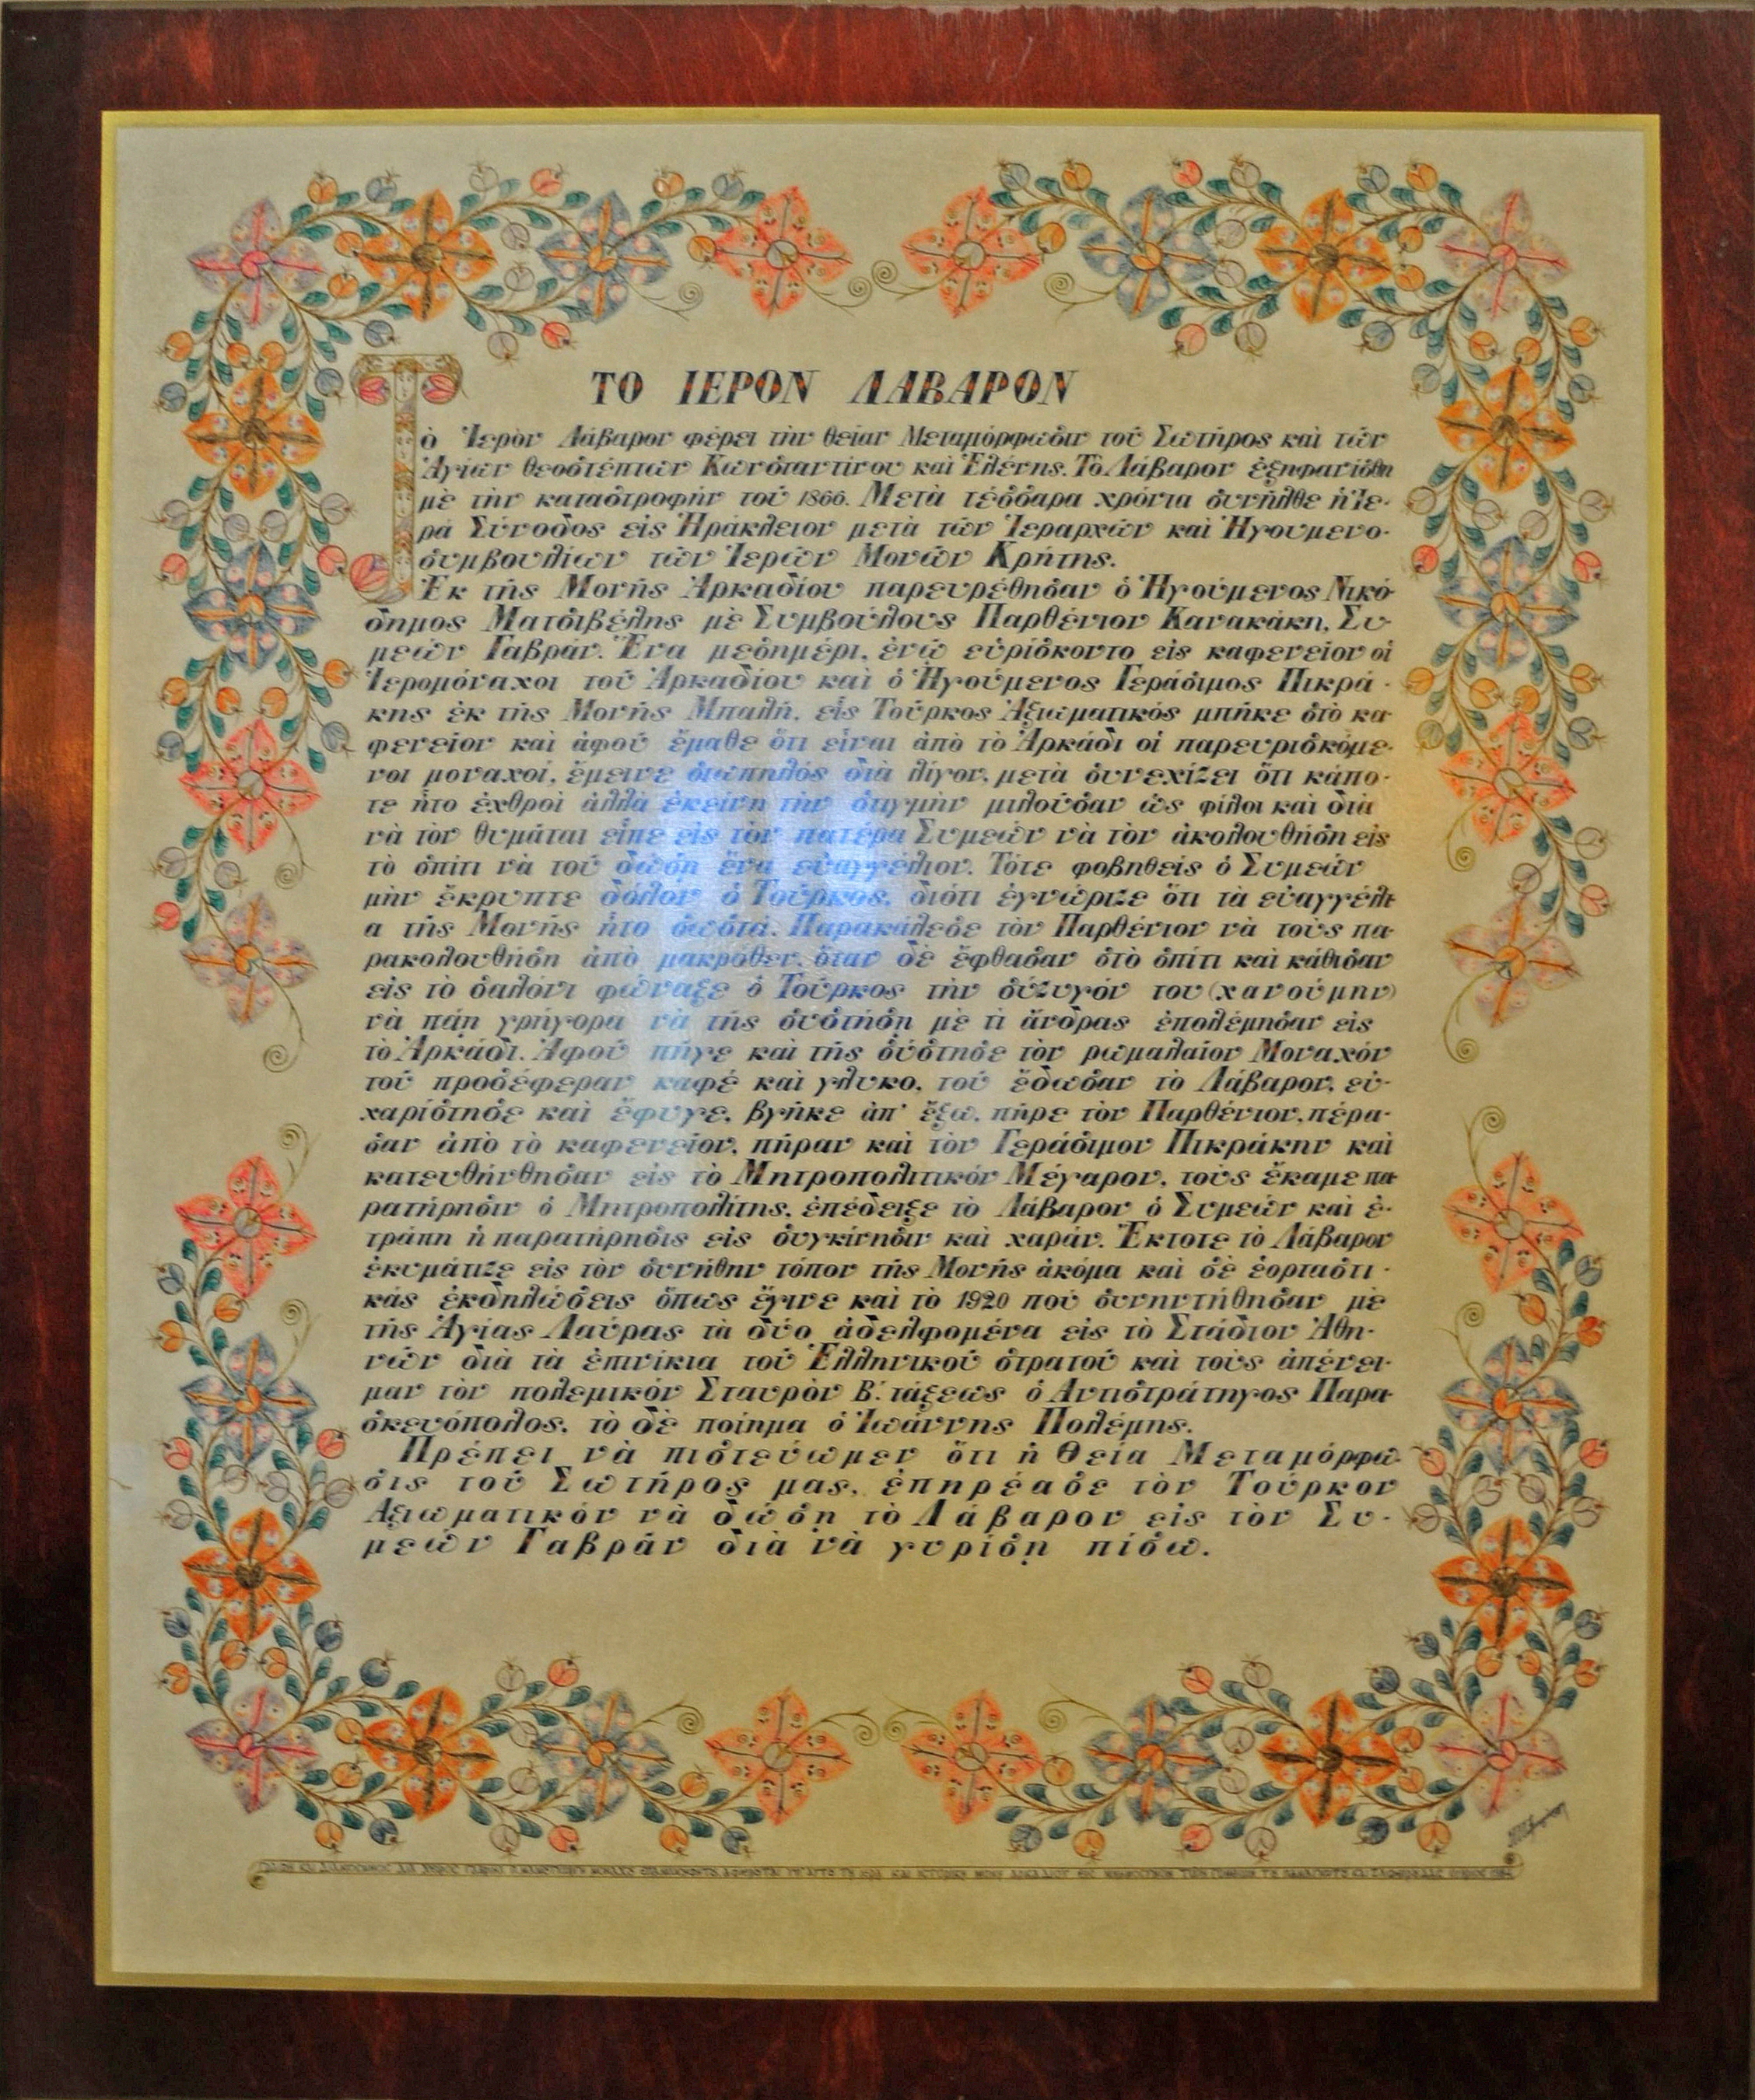 ΤΟ ΙΕΡΟΝ ΛΑΒΑΡΟΝ
Τὸ Ἱερὸν Λάβαρον φέρει τὴν θείαν Μεταμόρφωσιν τοῦ Σωτῆρος καὶ τῶν
Ἁγίων θεοστέπτων Κωνσταντίνου καὶ Ἑλένης. Τὸ Λάβαρον ἐξηφανίσθη
μὲ τὴν καταστροφὴν τοῦ 1866. Μετὰ τέσσαρα χρόνια συνῆλθε ἡ Ἱε-
ρά Σύνοδος εἰς Ἡράκλειον μετὰ τῶν Ἱεραρχῶν καὶ Ἡγουμενο-
συμβουλίων τῶν Ἱερῶν Μονῶν Κρήτης.
Ἐκ τῆς Μονῆς Ἀρκαδίου παρευρέθησαν ὁ Ἡγούμενος Νικό-
δημος Ματσιβέλης μὲ Συμβούλους Παρθένιον Κανακάκη, Συ-
μεών Γαβρᾶν. Ἕνα μεσημέρι, ἐνῷ εὑρίσκοντο εἰς καφενεῖον οἱ
Ἱερομόναχοι τοῦ Ἀρκαδίου καὶ ὁ Ἡγούμενος Γεράσιμος Πικρά-
κης ἐκ τῆς Μονῆς Μπαλῆ, εἷς Τοῦρκος Ἀξιωματικός μπῆκε στὸ κα-
φενεῖον καὶ ἀφοῦ ἔμαθε ὅτι εἶναι ἀπὸ τὸ Ἀρκάδι οἱ παρευρισκόμε-
νοι μοναχοί, ἔμεινε σιωπηλός διὰ λίγον, μετὰ συνεχίζει ὅτι κάπο-
τε ἦτο ἐχθροὶ ἀλλὰ ἐκείνη τὴν στιγμὴν μιλοῦσαν ὡς φίλοι καὶ διὰ
νὰ τὸν θυμᾶται εἶπε εἰς τὸν πατέρα Συμεών νὰ τὸν ἀκολουθήσῃ εἰς
τὸ σπίτι νὰ τοῦ δώσῃ ἕνα εὐαγγέλιον. Τότε φοβηθεὶς ὁ Συμεών
μὴν ἔκρυπτε δόλον ὁ Τοῦρκος, διότι ἐγνώριζε ὅτι τὰ εὐαγγέλι-
α τῆς Μονῆς ἦτο σωστά. Παρακάλεσε τὸν Παρθένιον νὰ τοὺς πα-
ρακολουθήσῃ ἀπὸ μακρόθεν, ὅταν δὲ ἔφθασαν στὸ σπίτι καὶ κάθισαν
εἰς τὸ σαλόνι φώναξε ὁ Τοῦρκος τὴν σύζυγόν του (χανούμην)
νὰ πάῃ γρήγορα νὰ τῆς συστήσῃ μὲ τὶ ἄνδρας ἐπολέμησαν εἰς
τὸ Ἀρκάδι. Ἀφοῦ πῆγε καὶ τῆς σύστησε τὸν ρωμαλαῖον Μοναχόν
τοῦ προσέφεραν καφέ καὶ γλυκο, τοῦ ἔδωσαν τὸ Λάβαρον, εὐ-
χαρίστησε καὶ ἔφυγε, βγῆκε ἀπ' ἔξω, πῆρε τὸν Παρθένιον, πέρα-
σαν ἀπὸ τὸ καφενεῖον, πῆραν καὶ τὸν Γεράσιμον Πικράκην καὶ
κατευθήνθησαν εἰς τὸ Μητροπολιτικόν Μέγαρον, τοὺς ἔκαμε πα-
ρατήρησιν ὁ Μητροπολίτης, ἐπέδειξε τὸ Λάβαρον ὁ Συμεών καὶ ἐ-
τράπη ἡ παρατήρησις εἰς συγκίνησιν καὶ χαράν. Ἔκτοτε τὸ Λάβαρον
ἐκυμάτιζε εἰς τὸν συνήθην τόπον τῆς Μονῆς ἀκόμα καὶ σὲ ἑορταστι-
κάς ἐκδηλώσεις ὅπως ἔγινε καὶ τὸ 1920 ποὺ συνηντήθησαν μὲ
τῆς Ἁγίας Λαύρας τὰ δύο ἀδελφομένα εἰς τὸ Στάδιον Ἀθη-
νῶν διὰ τὰ ἐπινίκια τοῦ Ἑλληνικοῦ στρατοῦ καὶ τοὺς ἀπένει-
μαν τὸν πολεμικόν Σταυρὸν Β΄. τάξεως ὁ Αντιστράτηγος Παρα-
σκευόπολος, τὸ δὲ ποίημα ὁ Ἰωάννης Πολέμης.
Πρέπει νὰ πιστεύωμεν ὅτι ἡ Θεία Μεταμόρφω-
σις τοῦ Σωτῆρος μας, ἐπηρέασε τὸν Τοῦρκον
Αξιωματικόν νὰ δώσῃ τὸ Λάβαρον εἰς τὸν Συ-
μεών Γαβρᾶν διὰ νὰ γυρίσῃ πίσω.